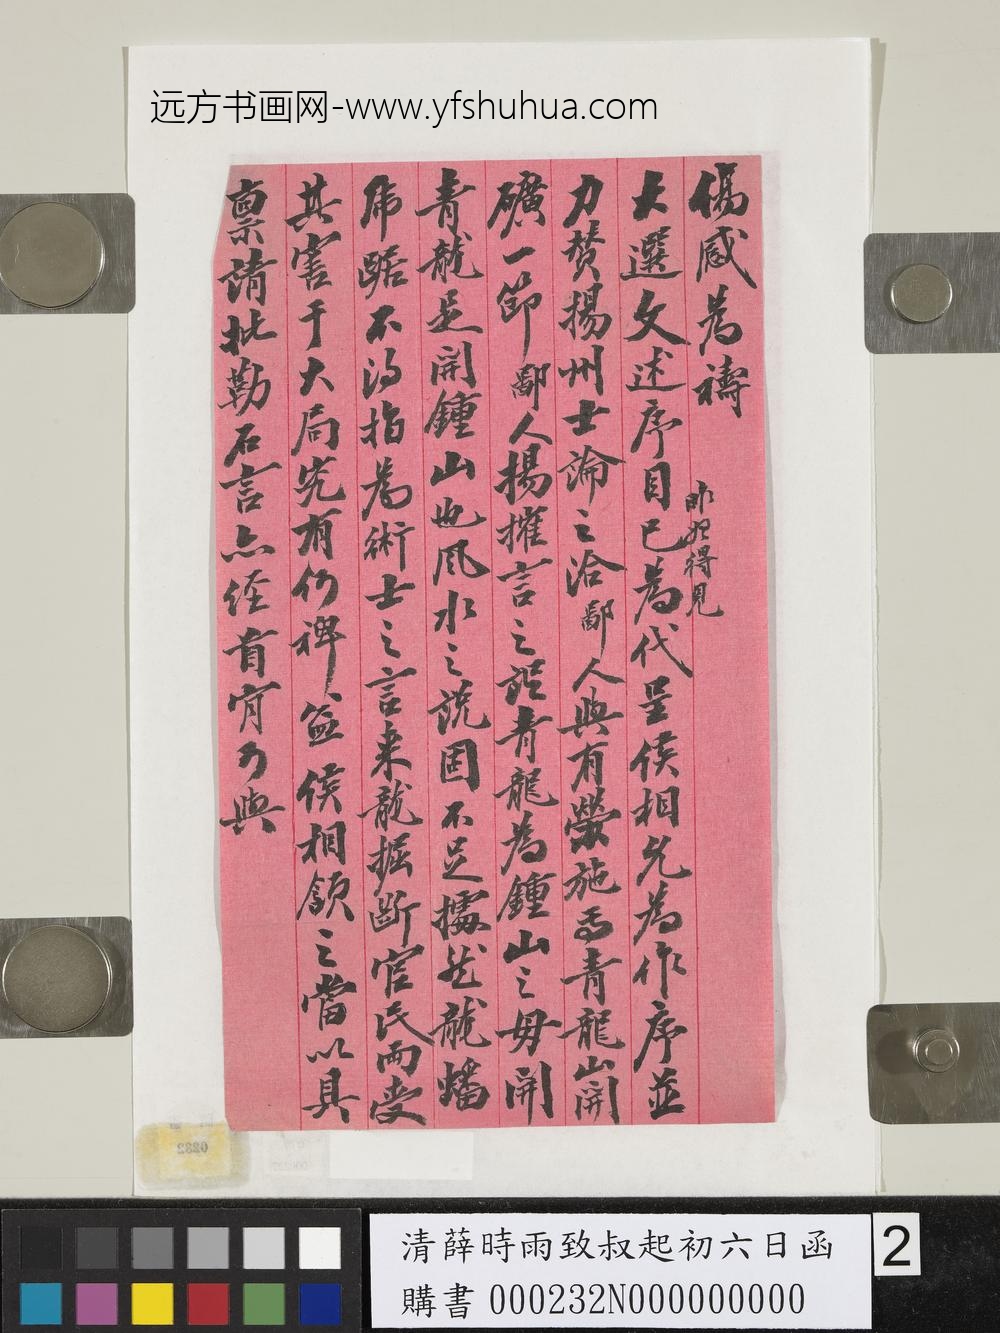 远方书画网-www.yfshuhua.com
僞感为禱
昨始得見
大選文述序目已为代呈侯相允为作序並
力赞揚州士論之洽鄙人與有榮施焉青龍山開
礦一節鄙人揚搉言之謂青龍为鍾山之母開
青龍是開鍾山也風水之說固不足據然龍蟠
虎踞不得指为術士之言来龍掘斷官民兩受
其害于大局究有何裨益侯相頷之當以具
禀請批勒石言点經首肯可與
清薛時雨致叔起初六日函
購書 000232N000000000
2
0232